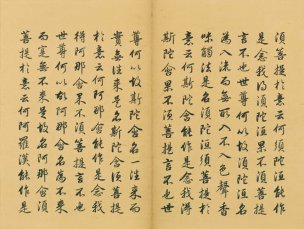 須菩提於意云何須陀洹能作
是念我得須陀洹果不須菩提
言不也世尊何以故須陀洹名
為入流而無所入不入色聲香
味觸法是名須陀洹須菩提於
意云何斯陀含能作是念我得
斯陀含果不須菩提言不也世
尊何以故斯陀含名一往來而
實無往來是名斯陀含須菩提
於意云何阿那含能作是念我
得阿那含果不須菩提言不也
世尊何以故阿那含名為不來
而實無不來是故名阿那含須
菩提於意云何阿羅漢能作是